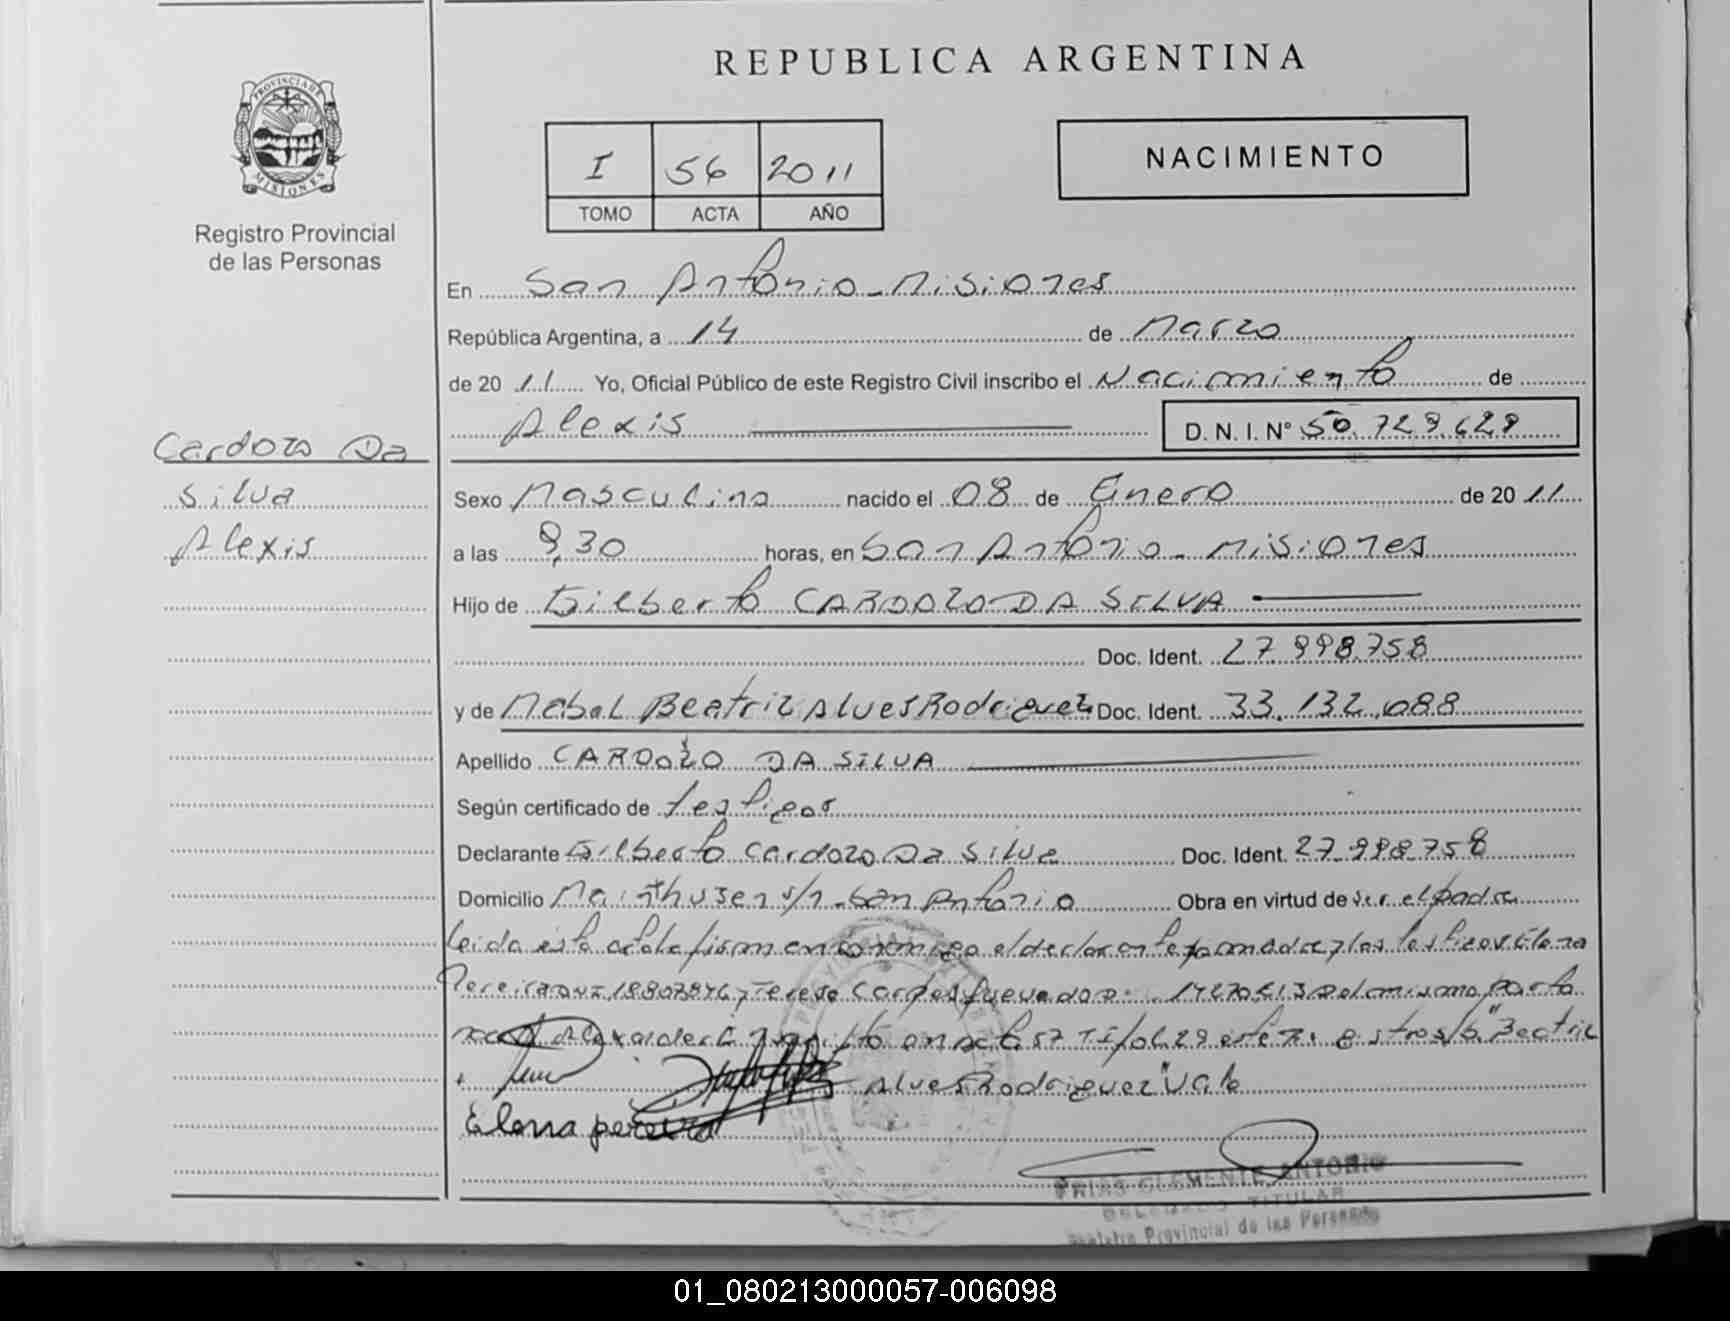 REPUBLICA ARGENTINA
PROVINCIA DE
MISIONES
Registro Provincial
de las Personas
I 56 2011
TOMO ACTA AÑO
NACIMIENTO
En San Antonio - Misiones
República Argentina, a 14 de Marzo
de 20 11 Yo, Oficial Público de este Registro Civil inscribo el Nacimiento de
Alexis D. N. I. N° 50.729.628
Cardozo Da
Silva
Alexis
Sexo Masculino nacido el 08 de Enero de 20 11
a las 9,30 horas, en San Antonio - Misiones
Hijo de Gilberto CARDOZO DA SILVA
Doc. Ident. 27.998.758
y de Mabal Beatriz Alves Rodriguez Doc. Ident. 33.132.088
Apellido CARDOZO DA SILVA
Según certificado de testigos
Declarante Gilberto Cardozo Da Silva Doc. Ident. 27.998.758
Domicilio s/n - San Antonio Obra en virtud de ser el padre
leida esta acta la firman conmigo el declarante, la madre y los testigos Elena
Pereira y Teresa del mismo parto
en acta 57 TI fol 29 este registro s/b "Beatriz
Alves Rodriguez" Vale
Elena pereira
FRIAS CLEMENTE ANTONIO
DELEGADO TITULAR
Registro Provincial de las Personas
01_080213000057-006098